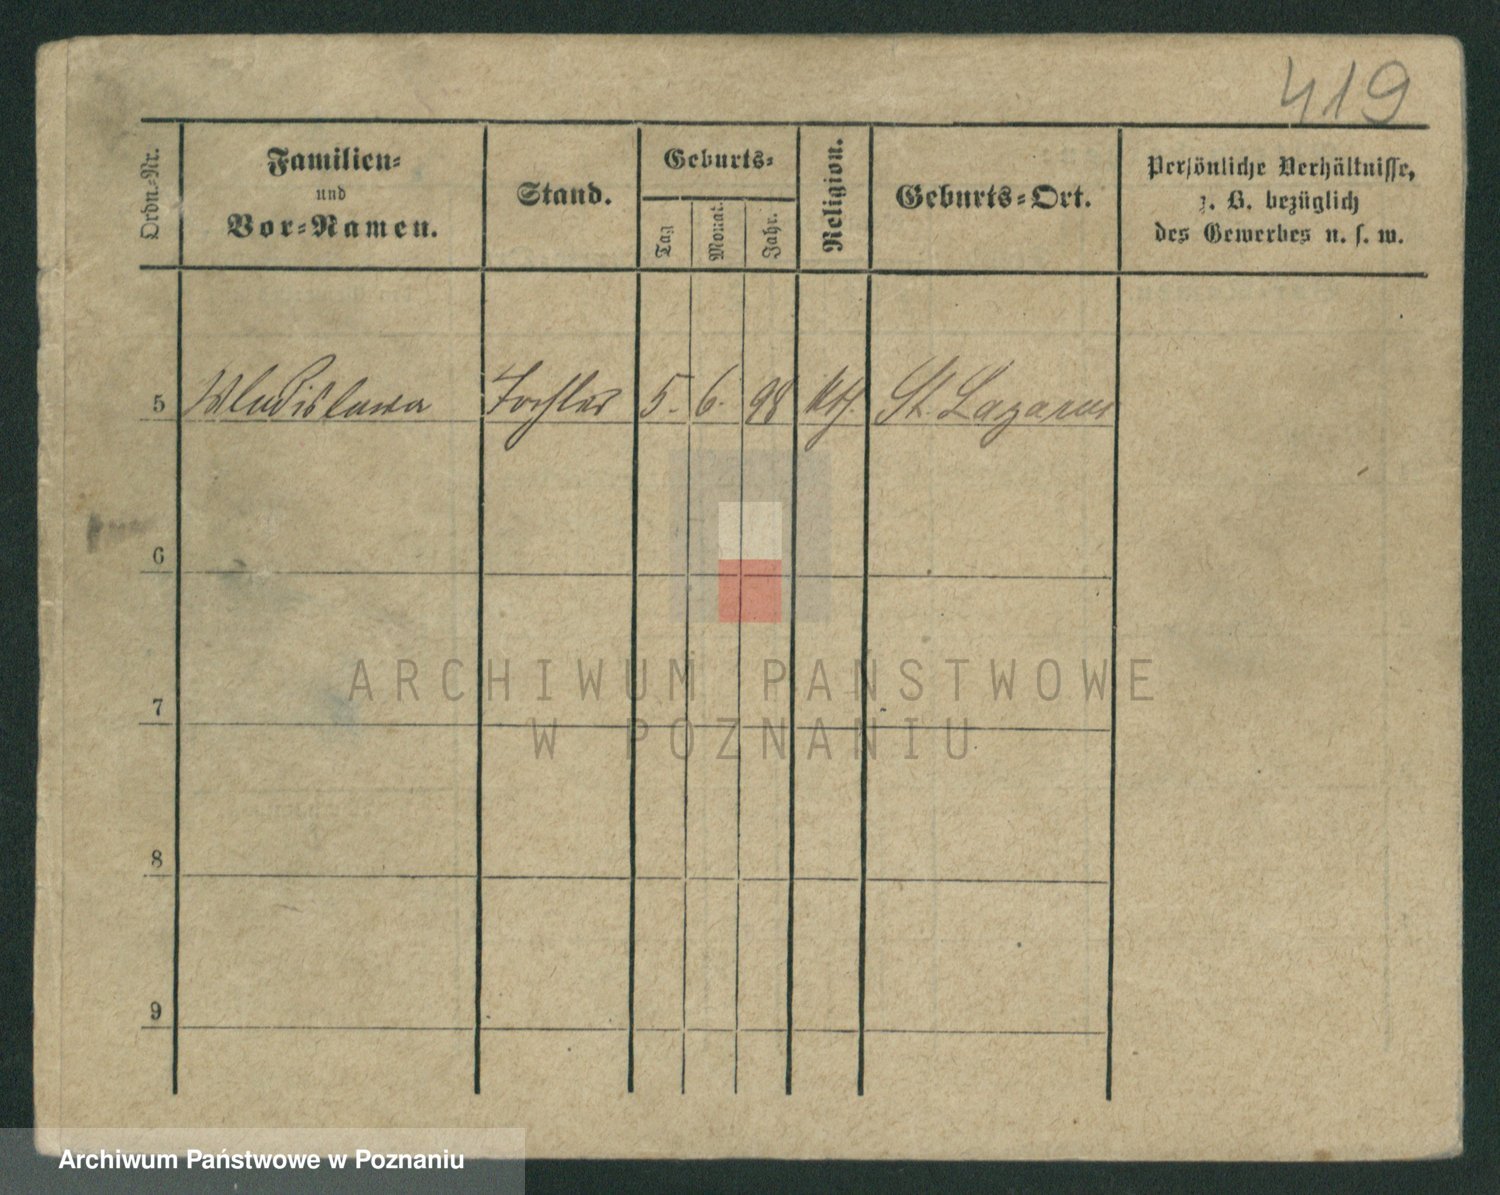 419
Ordn.-Nr.
Familien-
und
Vor-Namen.
Stand.
Geburts-
Tag
Monat.
Jahr.
Religion.
Geburts-Ort.
Persönliche Verhältnisse,
z. B. bezüglich
des Gewerbes u. s. w.
5 Wladislawa Tochter 5. 6. 98 kth. St. Lazarus
6
7
8
9
ARCHIWUM PAŃSTWOWE
W POZNANIU
Archiwum Państwowe w Poznaniu